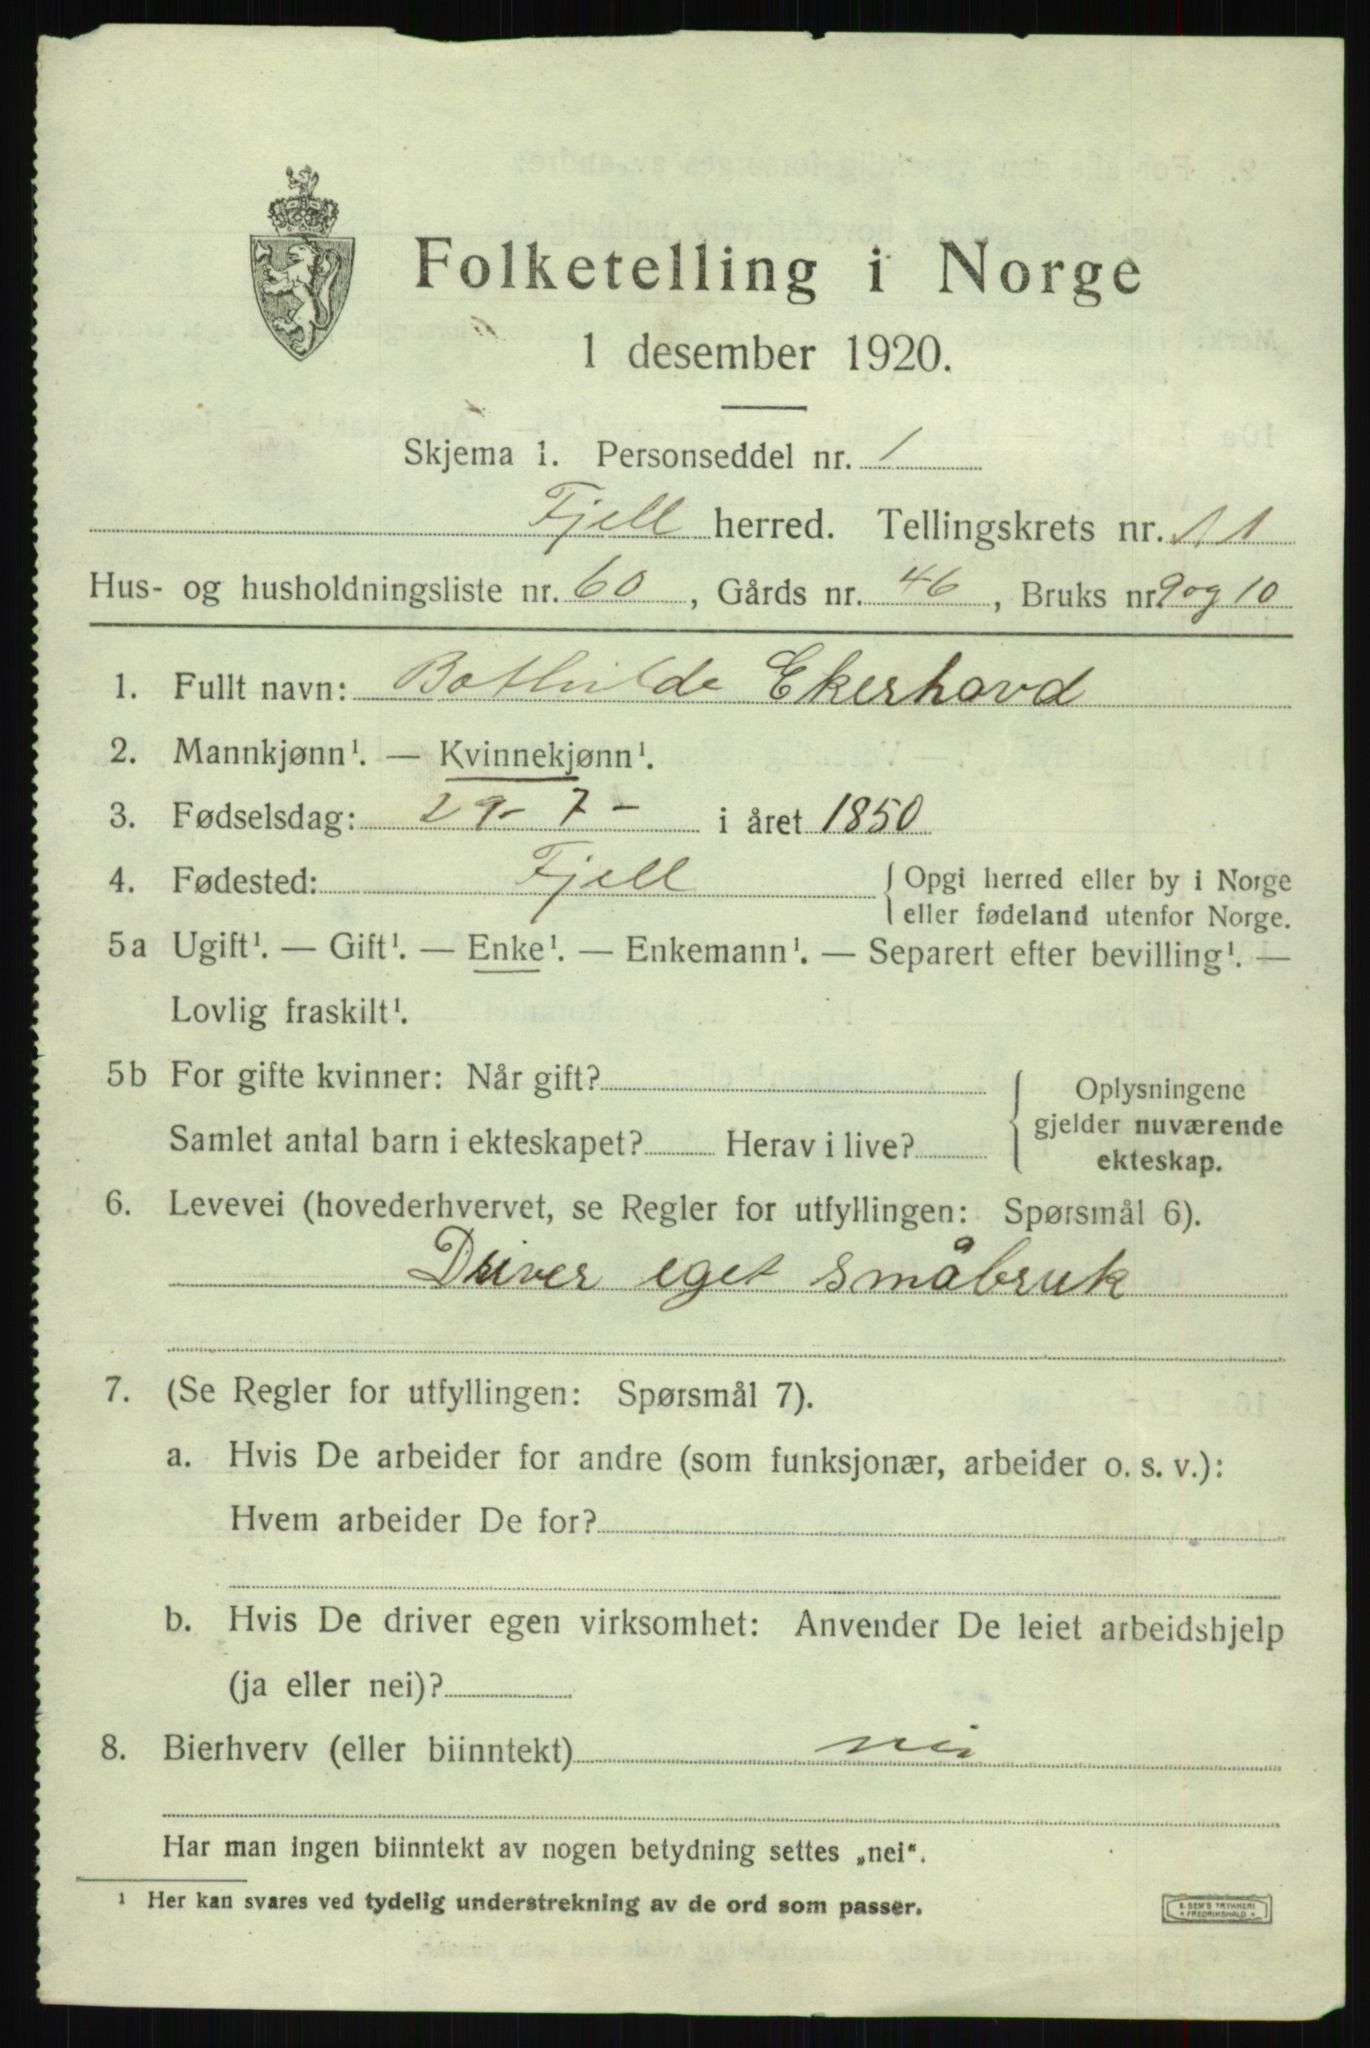 Folketelling i Norge
1 desember 1920.
Skjema 1. Personseddel nr. 1
Fjell herred. Tellingskrets nr. 11
Hus- og husholdningsliste nr. 60, Gårds nr. 46, Bruks nr. 9 og 10
1. Fullt navn: Bothilde Ekerhovd
2. Mannkjønn¹. — Kvinnekjønn¹.
3. Fødselsdag: 29- 7 - i året 1850
4. Fødested: Fjell { Opgi herred eller by i Norge
eller fødeland utenfor Norge.
5a Ugift¹. — Gift¹. — Enke¹. — Enkemann¹. — Separert efter bevilling¹. —
Lovlig fraskilt¹.
5b For gifte kvinner: Når gift?
Samlet antal barn i ekteskapet? Herav i live?
Oplysningene
gjelder nuværende
ekteskap.
6. Levevei (hovederhvervet, se Regler for utfyllingen: Spørsmål 6).
Driver eget småbruk
7. (Se Regler for utfyllingen: Spørsmål 7).
a. Hvis De arbeider for andre (som funksjonær, arbeider o. s. v.):
Hvem arbeider De for?
b. Hvis De driver egen virksomhet: Anvender De leiet arbeidshjelp
(ja eller nei)?
8. Bierhverv (eller biinntekt) nei
Har man ingen biinntekt av nogen betydning settes „nei“.
¹ Her kan svares ved tydelig understrekning av de ord som passer.
E. SEM'S TRYKKERI
* FREDRIKSHALD *